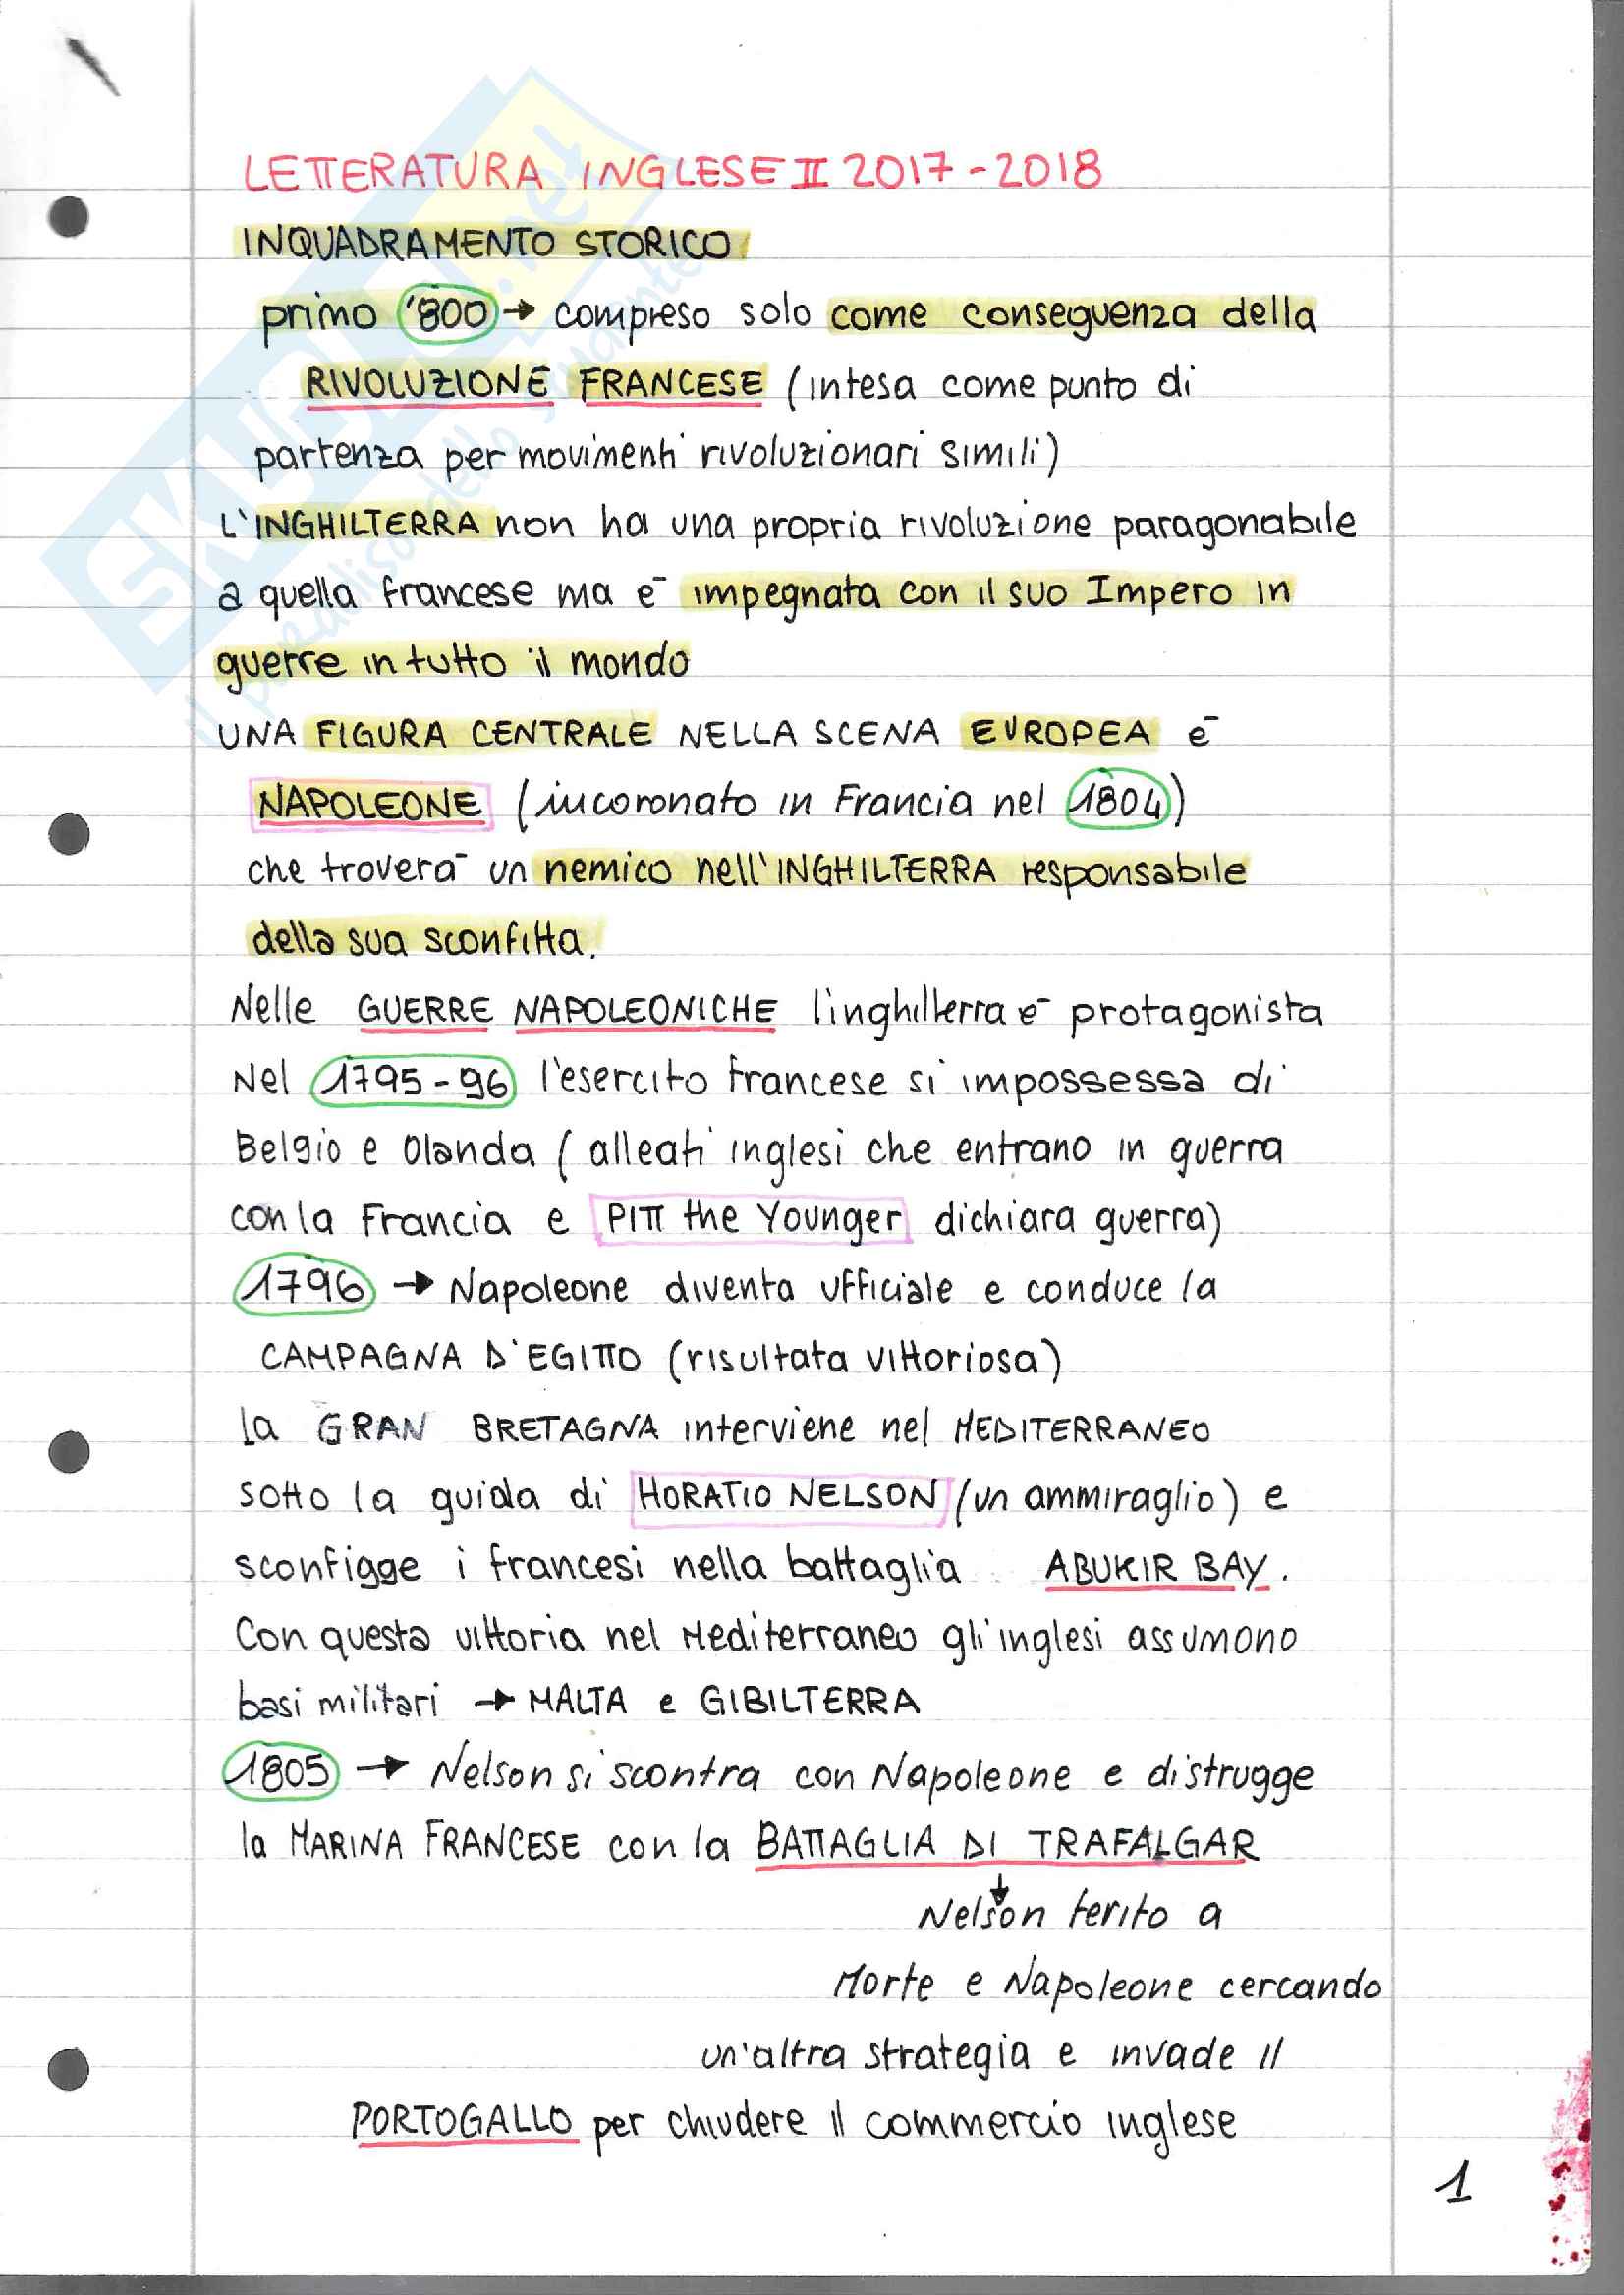 LETTERATURA INGLESE II 2017-2018
INQUADRAMENTO STORICO
primo '800 → compreso solo come conseguenza della
RIVOLUZIONE FRANCESE (intesa come punto di
partenza per movimenti rivoluzionari simili)
L'INGHILTERRA non ha una propria rivoluzione paragonabile
a quella francese ma è impegnata con il suo Impero in
guerre in tutto il mondo
UNA FIGURA CENTRALE NELLA SCENA EUROPEA è
NAPOLEONE (incoronato in Francia nel 1804)
che troverà un nemico nell'INGHILTERRA responsabile
della sua sconfitta.
Nelle GUERRE NAPOLEONICHE l'inghilterra è protagonista
Nel 1795-96 l'esercito francese si impossessa di
Belgio e Olanda (alleati inglesi che entrano in guerra
con la Francia e PITT the Younger dichiara guerra)
1796 → Napoleone diventa ufficiale e conduce la
CAMPAGNA D'EGITTO (risultata vittoriosa)
la GRAN BRETAGNA interviene nel MEDITERRANEO
sotto la guida di HORATIO NELSON (un ammiraglio) e
sconfigge i francesi nella battaglia ABUKIR BAY.
Con questa vittoria nel Mediterraneo gli inglesi assumono
basi militari → MALTA e GIBILTERRA
1805 → Nelson si scontra con Napoleone e distrugge
la MARINA FRANCESE con la BATTAGLIA DI TRAFALGAR
↓
Nelson ferito a
Morte e Napoleone cercando
un'altra strategia e invade il
PORTOGALLO per chiudere il commercio inglese
1